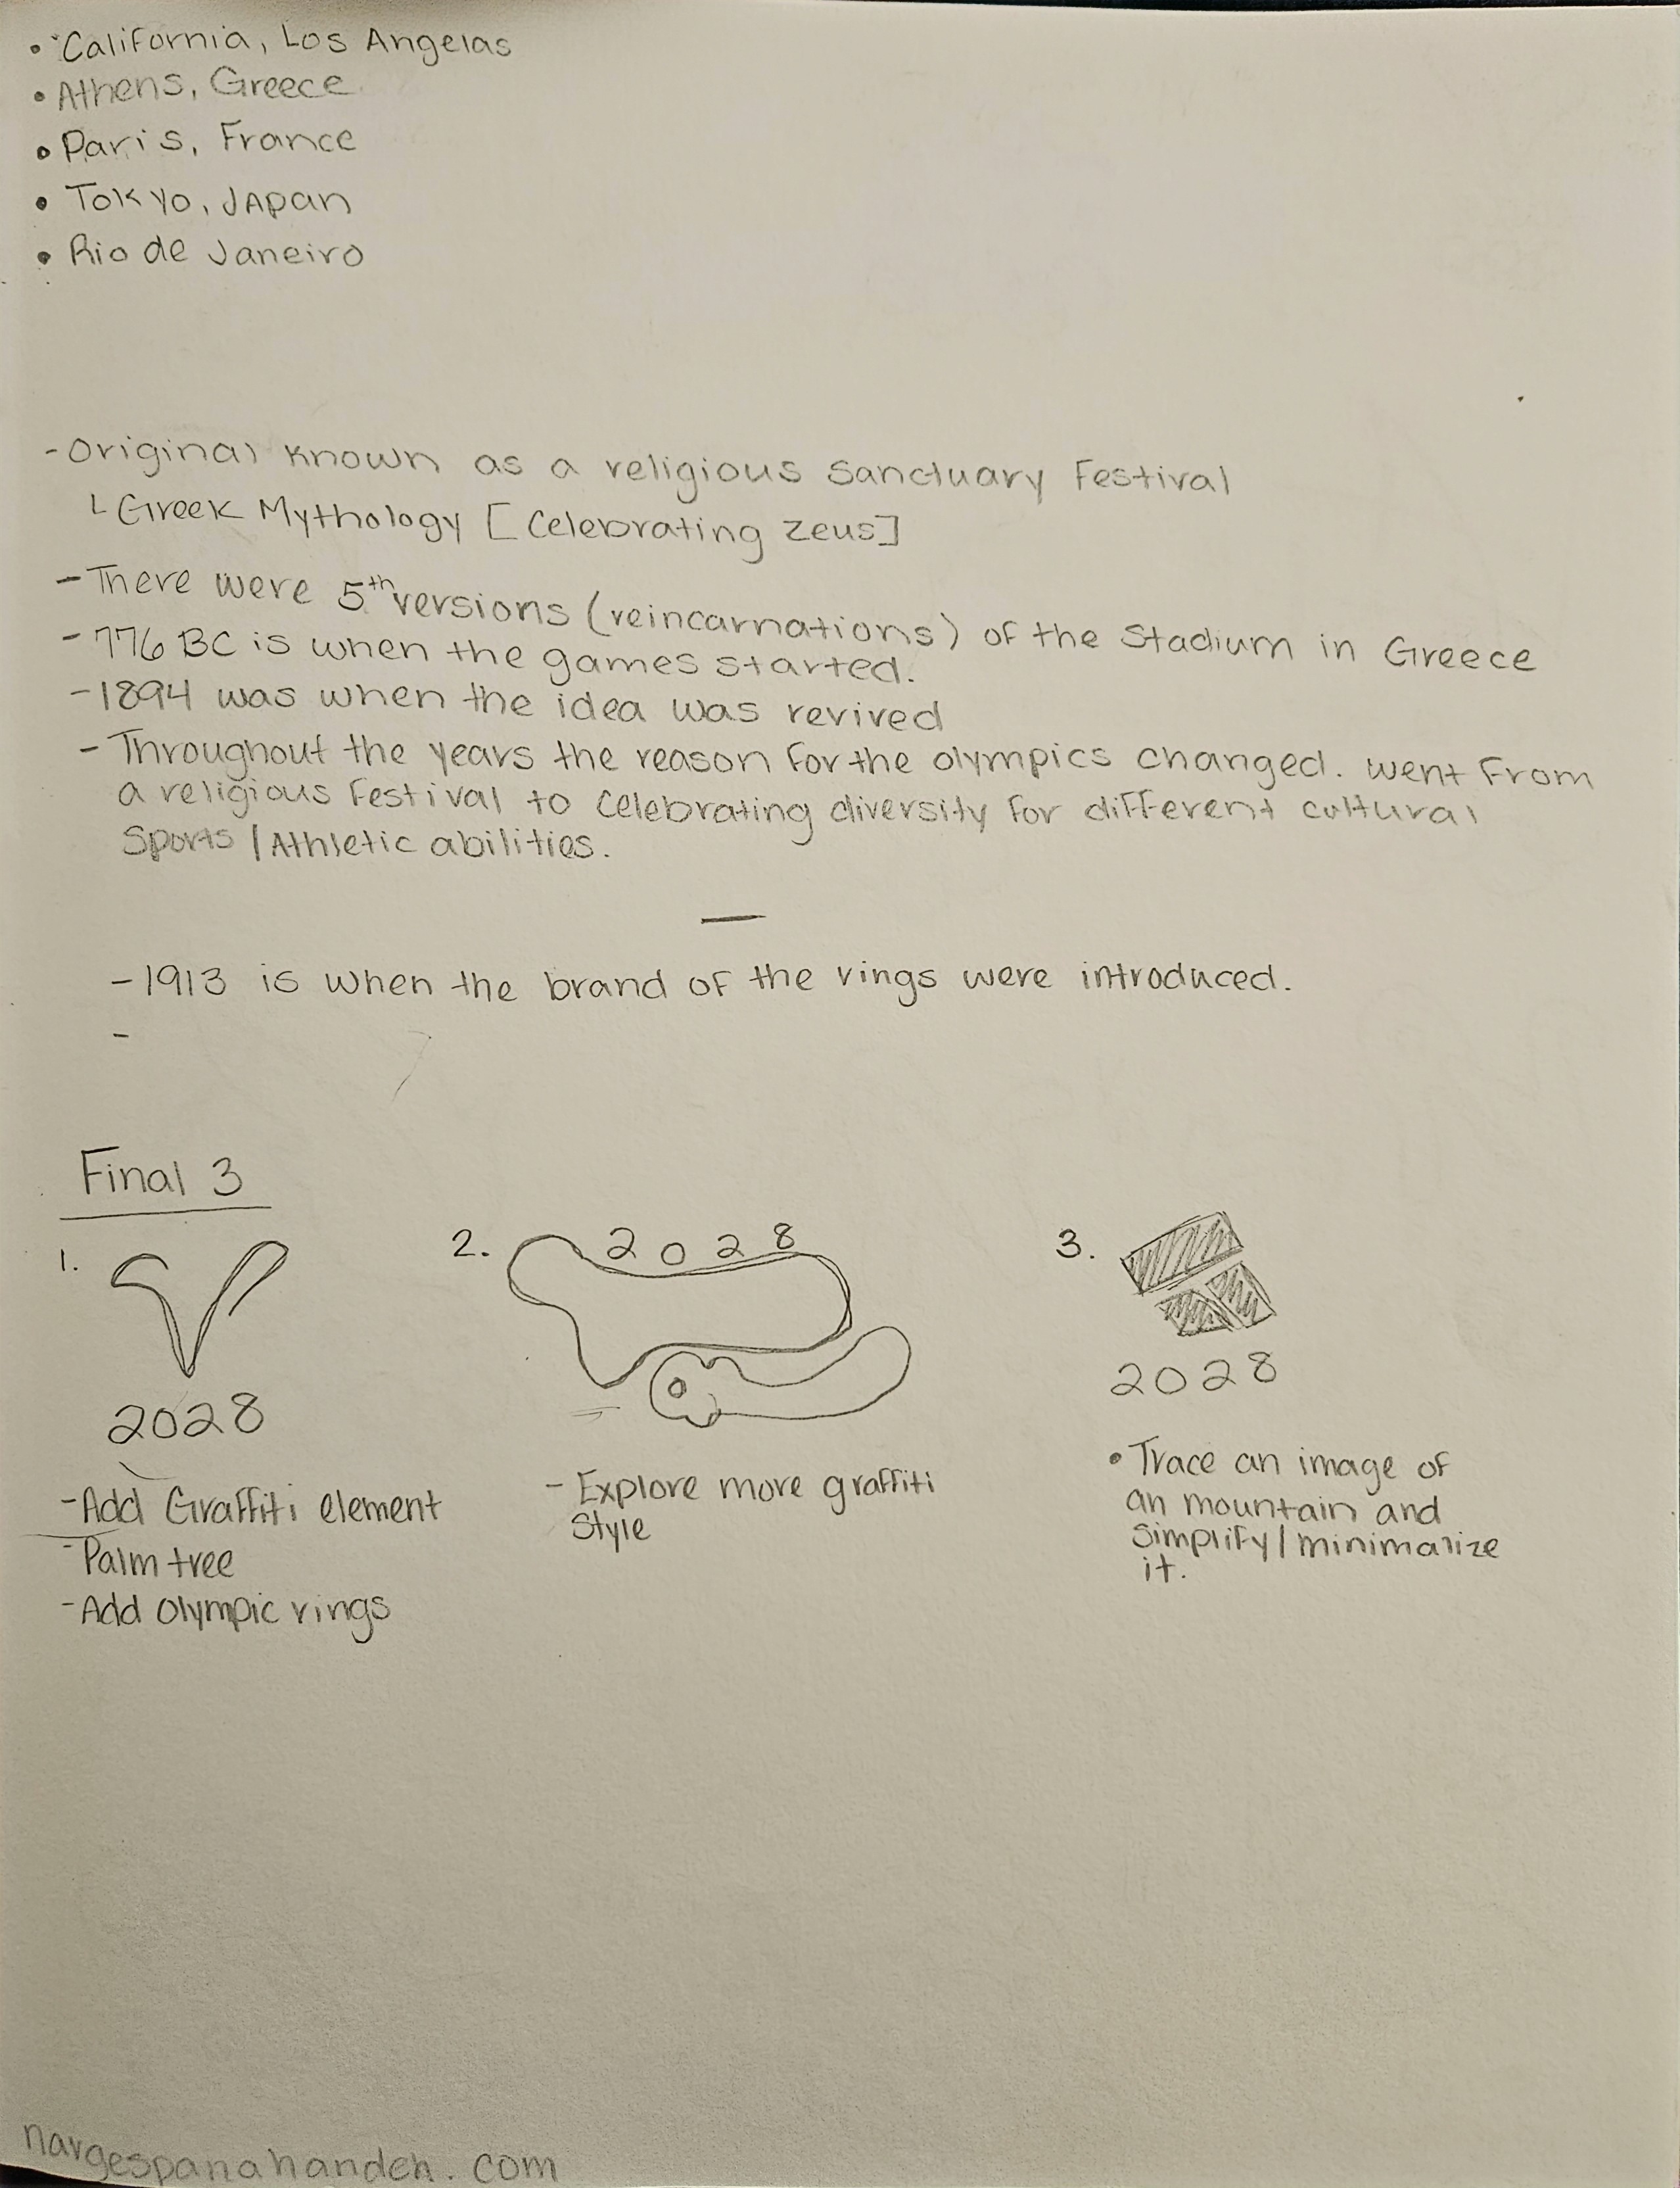 • California, Los Angelas
• Athens, Greece
• Paris, France
• Tokyo, JApan
• Rio de Janeiro
- Original known as a religious Sanctuary Festival
└ Greek Mythology [Celebrating Zeus]
- There were 5th versions (reincarnations) of the Stadium in Greece
- 776 BC is when the games started.
- 1894 was when the idea was revived
- Throughout the years the reason for the olympics changed. went from
a religious Festival to celebrating diversity for different cultural
Sports / Athletic abilities.
- 1913 is when the brand of the rings were introduced.
-
Final 3
1.
2028
- Add Graffiti element
- Palm tree
- Add Olympic rings
2.
2028
- Explore more graffiti
Style
3.
2028
• Trace an image of
an mountain and
Simplify/minimalize
it.
nargespanahandeh.com